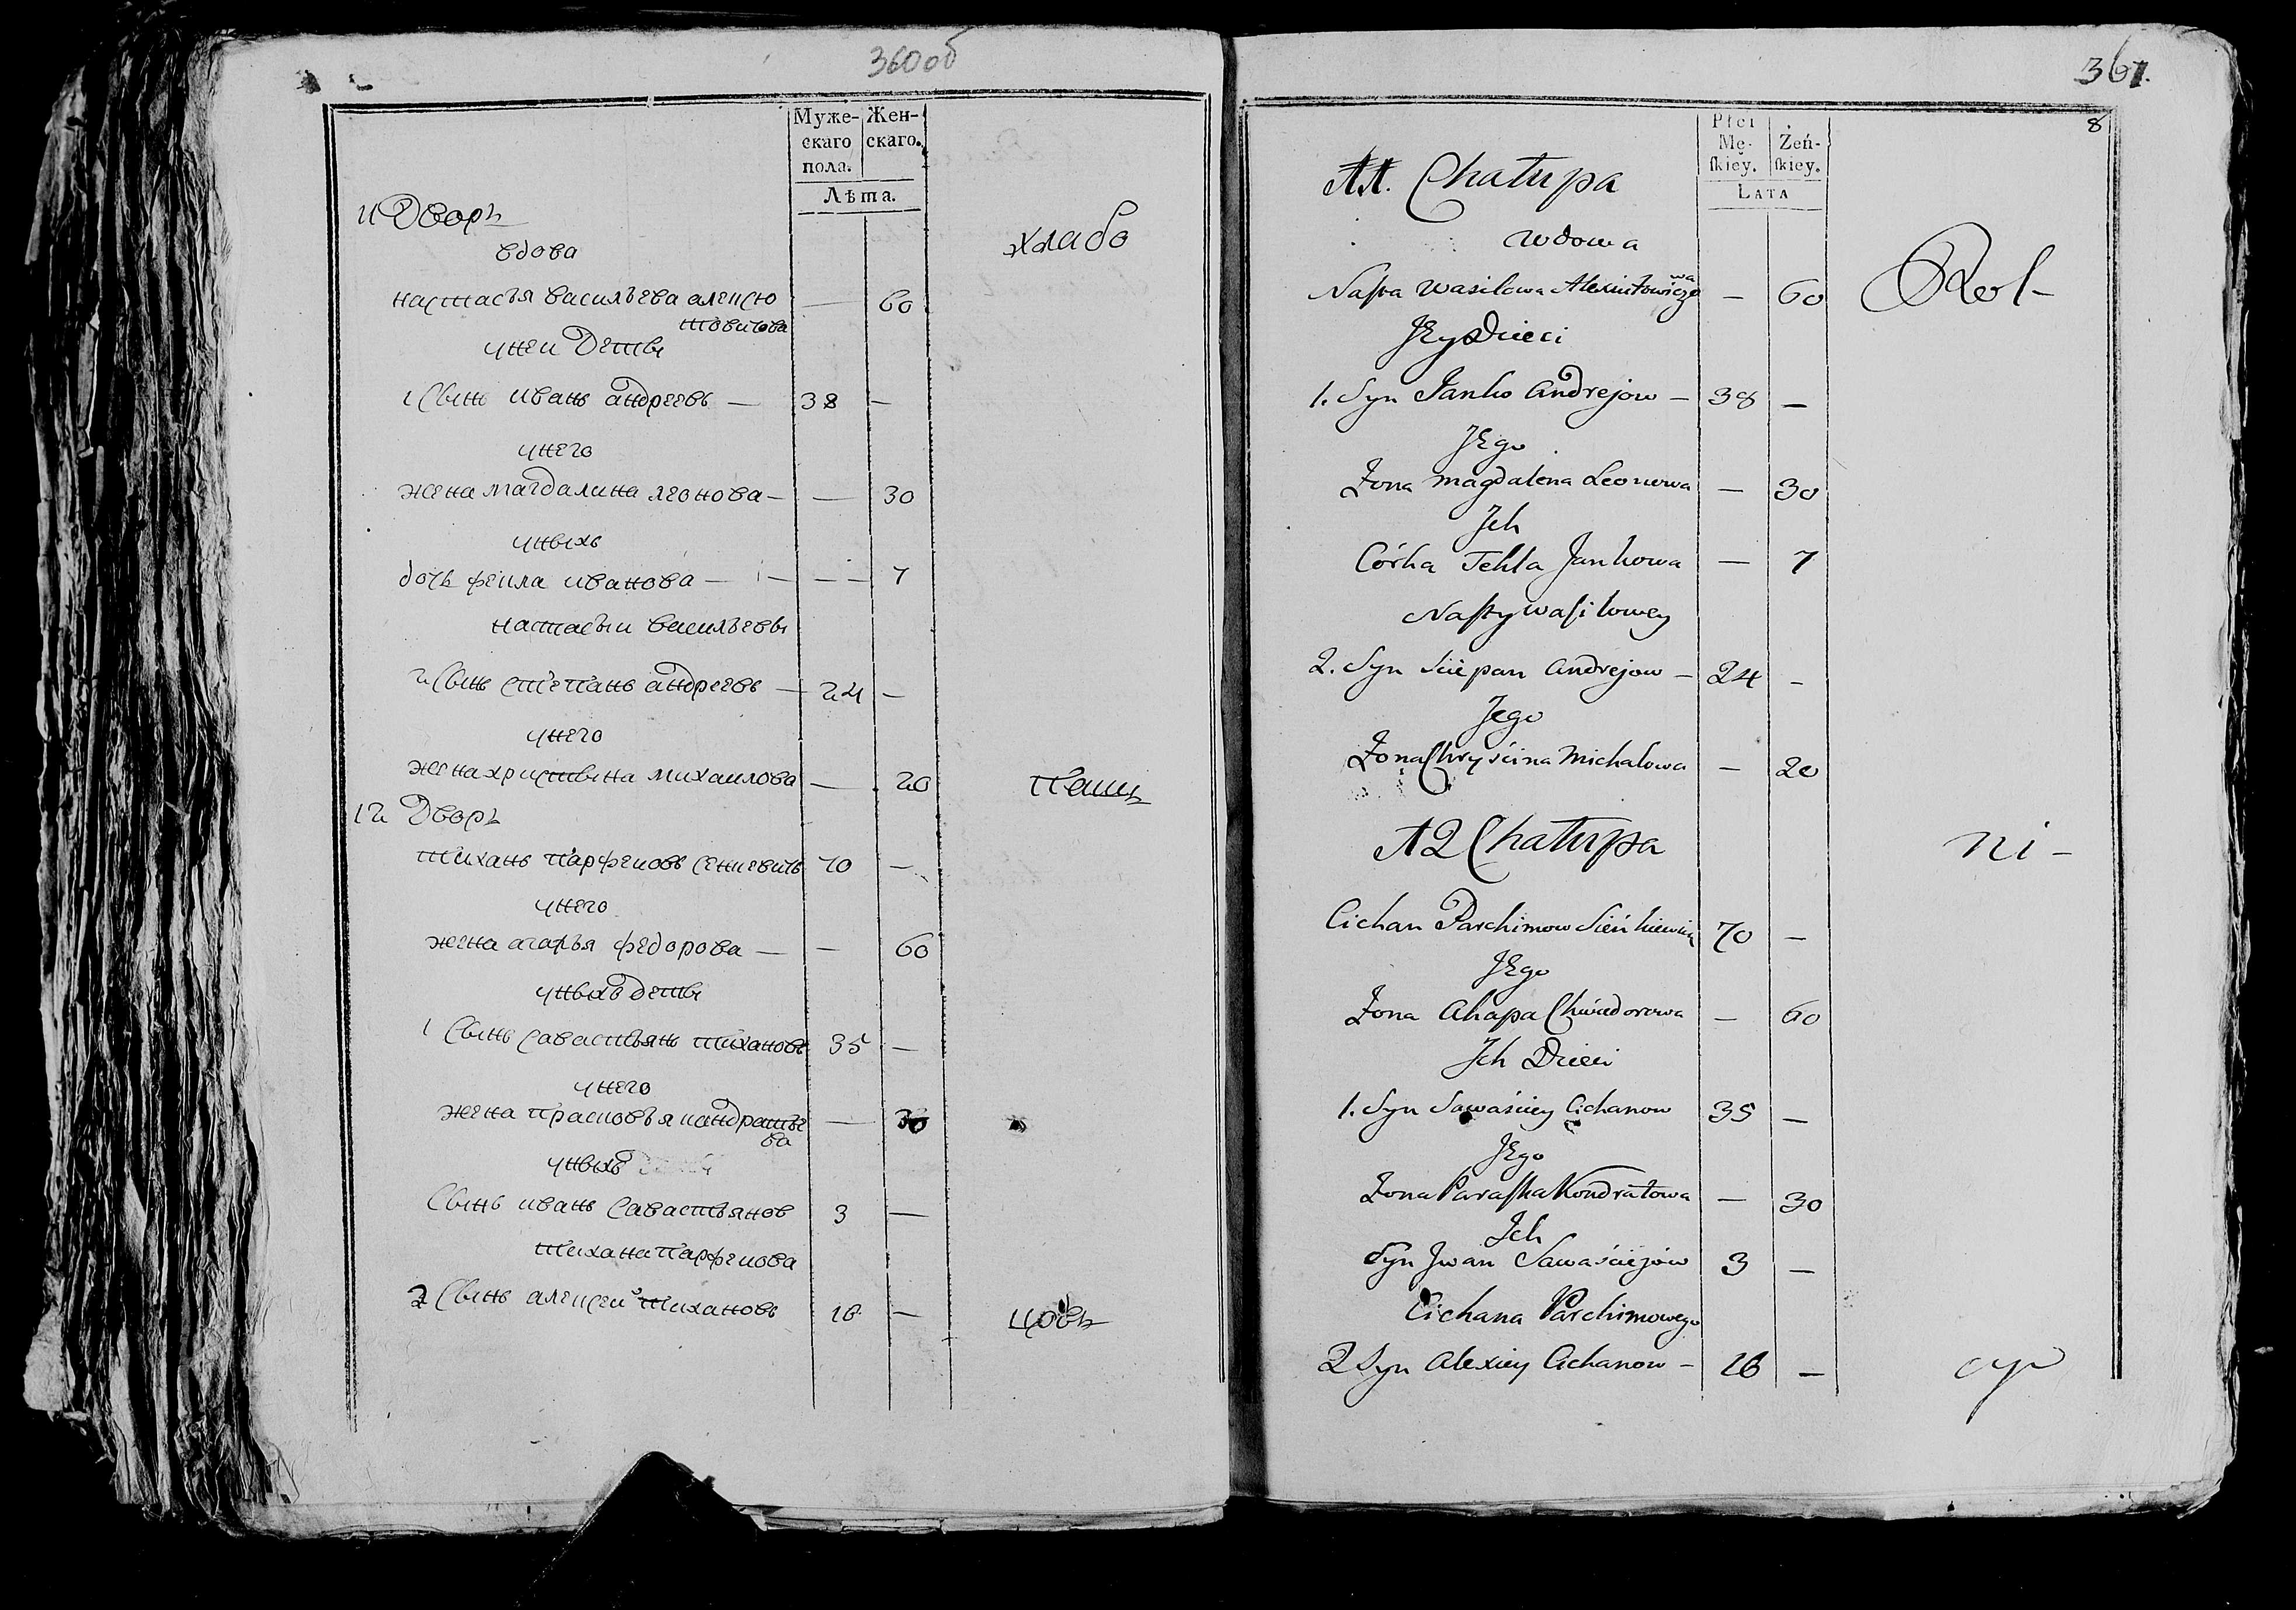 360об
Муже- Жен-
скаго скаго.
пола.
Лѣта.
11 Дворъ
вдова
хлебо
настасья васильева алексю 60
товичова
унеи Дети
1 Сынъ иванъ андреевъ — 38 —
унего
жена магдалина леонова — — 30
унихъ
дочь фекла иванова — — 7
настасьи васильевы
2 Сынъ степанъ андреевъ — 24 —
унего
жена христина михаилова — 20
пашц
12 Дворъ
тиханъ парфеновъ сенкевичь 70 —
унего
жена агапья федорова — — 60
унихъ дети
1 Сынъ савастьянъ тихановъ 35 —
унего
жена прасковья кандратье — 30
ва
унихъ
Сынъ иванъ савастьянов 3 —
тихана парфенова
2 Сынъ алексеи тихановъ 16 —
цовъ
361.
8
Płci
Mę- Żeń-
ſkiey. ſkiey.
LATA
11. Chałupa
wdowa
Naſta Wasilowa Alexiutowicze — 60
wa
Rol-
Jey Dzieci
1. Syn Janko Andrejow — 38 —
Jego
Żona Magdalena Leonowa — 30
Jch
Córka Tekla Jankowa — 7
Naſty Waſilowey
2. Syn Sciepan Andrejow — 24 —
Jego
Żona Chryścina Michalowa — 20
12 Chałupa
ni-
Cichan Parchimow Sieńkiewicz 70 —
Jego
Żona Ahapa Chwiedorowa — 60
Jch Dzieci
1. Syn Sawaściey Cichanow 35 —
Jego
Żona Paraſka Kondratowa — 30
Jch
Syn Jwan Sawaściejow 3 —
Cichana Parchimowego
2 Syn Alexiey Cichanow — 16 —
cy